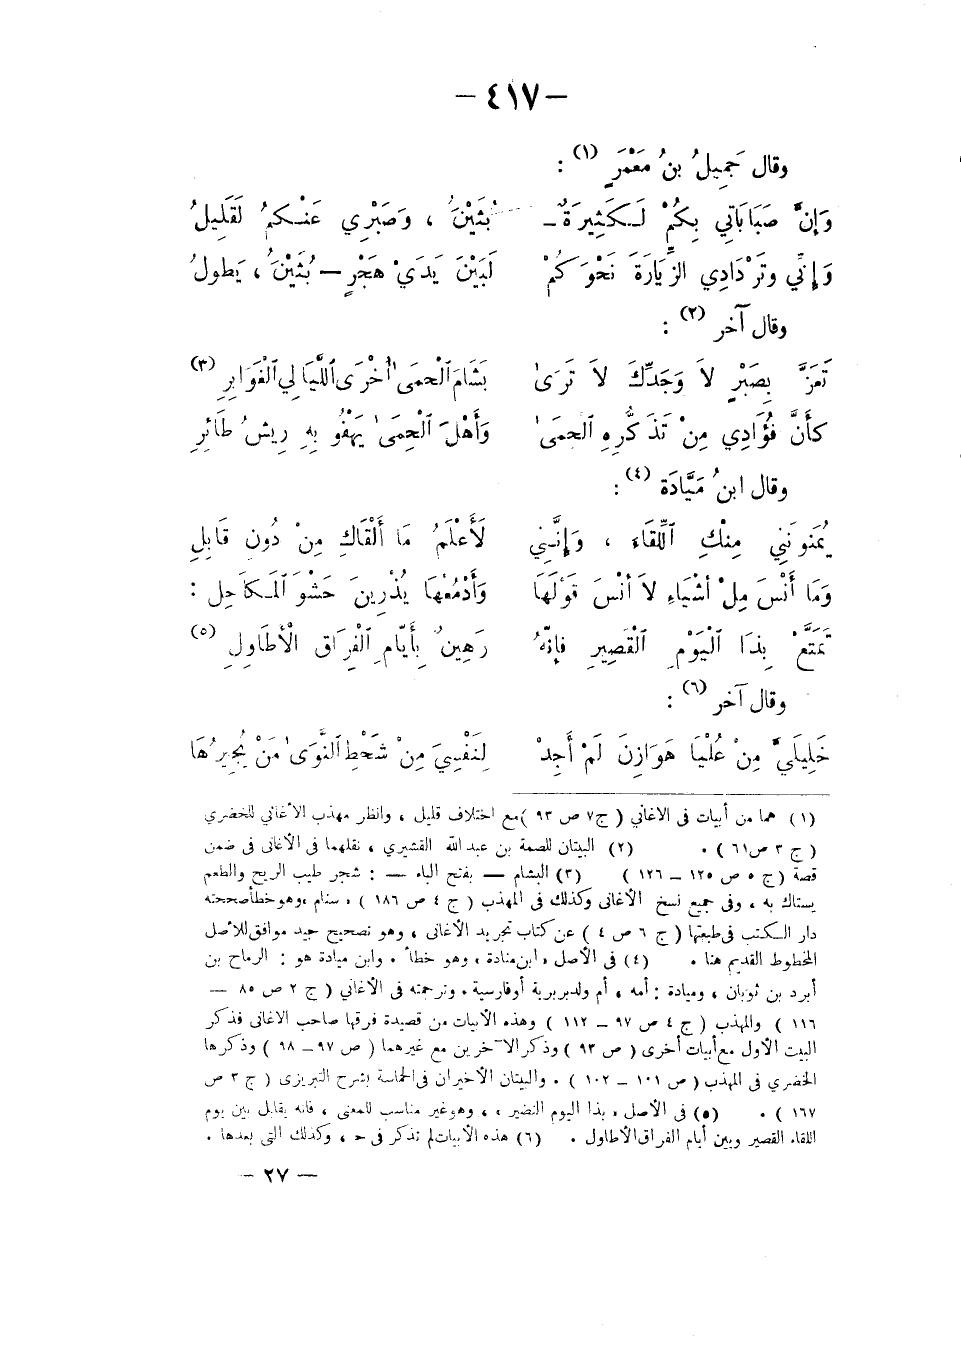 — ٤١٧ —
وقال جَمِيلُ بنُ مَعْمَرٍ (١) :
وَإنَّ صَبَابَاتِي بِكُمْ لَكَثِيرَةٌ بُثَيْنَ ، وَصَبْرِي عَنْكُمُ لَقَلِيلُ
وَإنِّي وتَرْدَادِي الزِّيَارَةَ نَحْوَكُمْ لَبَيْنَ يَدَيْ هَجْرٍ — بُثَيْنُ ، يَطولُ
وقال آخر (٢) :
تَعَزَّ بِصَبْرٍ لاَ وَجَدِّكَ لاَ تَرَىٰ بَشَامَ ٱلْحِمَىٰ أُخْرَى ٱللَّيَالِي ٱلْغَوَابِرِ (٣)
كأَنَّ فُؤَادِي مِنْ تَذَكُّرِهِ ٱلْحِمَىٰ وَأَهْلَ ٱلْحِمَىٰ يَهْفُو بِهِ رِيشُ طَائِرِ
وقال ابنُ مَيَّادَة (٤) :
يُمَنونَنِي مِنْكِ ٱللِّقَاءَ ، وَإِنَّنِي لَأَعْلَمُ مَا أَلْقَاكِ مِنْ دُونِ قَابِلِ
وَمَا أَنْسَ مِلْ أَشْيَاءِ لاَ أَنْسَ قَوْلَهَا وَأَدْمُعُهَا يُذْرِينَ حَشْوَ ٱلْمَكاَحِلِ :
تَمَتَّعْ بِذَا ٱلْيَوْمِ ٱلْقَصِيرِ فإِنَّهُ رَهِينٌ بِأَيَّامِ ٱلْفِرَاقِ الْأَطَاوِلِ (٥)
وقال آخر (٦) :
خَلِيلَيَّ مِنْ عُلْيَا هَوَازِنَ لَمْ أَجِدْ لِنَفْسِيَ مِنْ شَحْطِ ٱلنَّوَىٰ مَنْ يُجِيرُهَا
(١) هما من أبيات فى الاغاني ( ج٧ ص ٩٣ ) مع اختلاف قليل ، وانظر مهذب الأغاني للخضري
( ج ٣ ص ٦١ ) . (٢) البيتان للصمة بن عبد الله القشيري ، نقلهما فى الأغانى فى ضمن
قصة ( ج ٥ ص ١٢٥ — ١٢٦ ) (٣) البشام — بفتح الباء — : شجر طيب الريح والطعم
يستاك به ، وفى جميع نسخ الأغانى وكذلك فى المهذب ( ج ٤ ص ١٨٦ ) « سنام » وهو خطأ صححته
دار الكتب فى طبعتها ( ج ٦ ص ٤ ) عن كتاب تجريد الأغانى ، وهو تصحيح جيد موافق للأصل
المخطوط القديم هنا . (٤) فى الأصل « ابن منادة » وهو خطأ . وابن ميادة هو : الرماح بن
أبرد بن ثوبان ، وميادة : أمه ، أم ولد بربرية أو فارسية . وترجمته فى الأغاني ( ج ٢ ص ٨٥ —
١١٦ ) والمهذب ( ج ٤ ص ٩٧ — ١١٢ ) وهذه الأبيات من قصيدة فرقها صاحب الاغانى فذكر
البيت الأول مع أبيات أخرى ( ص ٩٣ ) وذكر الآخرين مع غيرهما ( ص ٩٧ — ٩٨ ) وذكرها
الخضري فى المهذب ( ص ١٠١ — ١٠٢ ) . والبيتان الأخيران فى الحماسة بشرح التبريزى ( ج ٣ ص
١٦٧ ) . (٥) فى الأصل « بذا اليوم النضير » ، وهو غير مناسب للمعنى ، فانه يقابل بين يوم
اللقاء القصير وبين أيام الفراق الأطاول . (٦) هذه الأبيات لم تذكر فى ح ، وكذلك التى بعدها .
— ٢٧ —